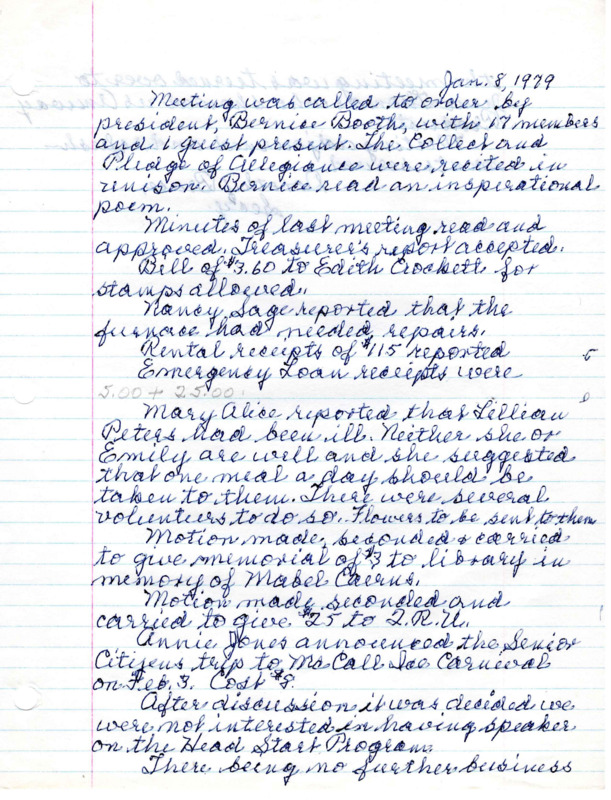 Jan. 8, 1979
Meeting was called to order by
president, Bernice Booth, with 17 members
and 1 guest present. The Collect and
Pledge of Allegiance were recited in
unison. Bernice read an insperational
poem.
Minutes of last meeting read and
approved. Treasurer's report accepted.
Bill of $3.60 to Edith Crockett for
stamps allowed.
Nancy Sage reported that the
furnace had needed repairs.
Rental receipts of $115 reported
Emergency Loan receipts were
5.00 + 25.00.
Mary Alice reported that Lillian
Peters had been ill. Neither she or
Emily are well and she suggested
that one meal a day should be
taken to them. There were several
volunteers to do so. Flowers to be sent to them
Motion made, seconded & carried
to give memorial of $3 to library in
memory of Mabel
Motion made, seconded and
carried to give $25 to I.R.U.
Annie Jones announced the Senior
Citizens trip to McCall Ice Carnival
on Feb. 3. Cost $8.
After discussion it was decided we
were not interested in having speaker
on the Head Start Program.
There being no further business